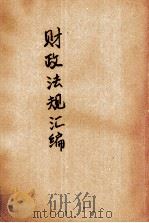 财政法规汇编